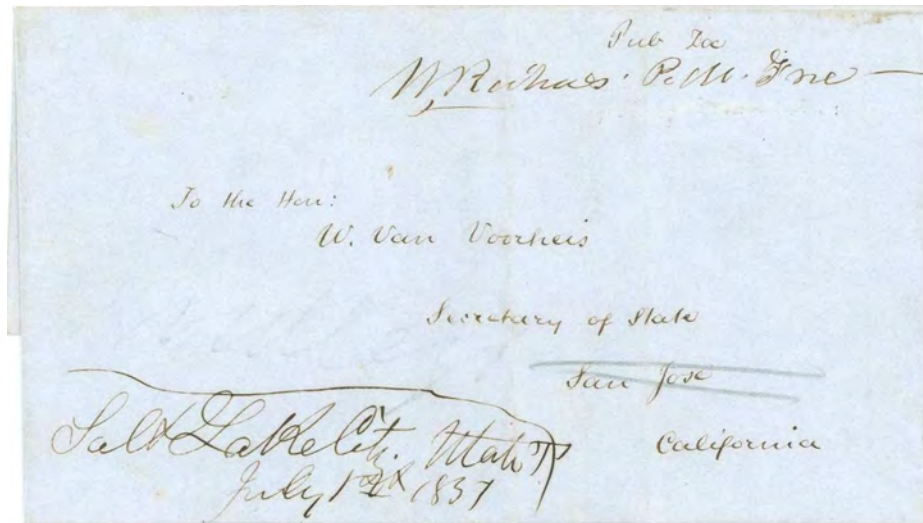 Pub Doc
W Richards P.M. Free
To the Hon:
W. Van Voorheis
Secretary of State
San Jose
California
Salt Lake City. Utah T
July